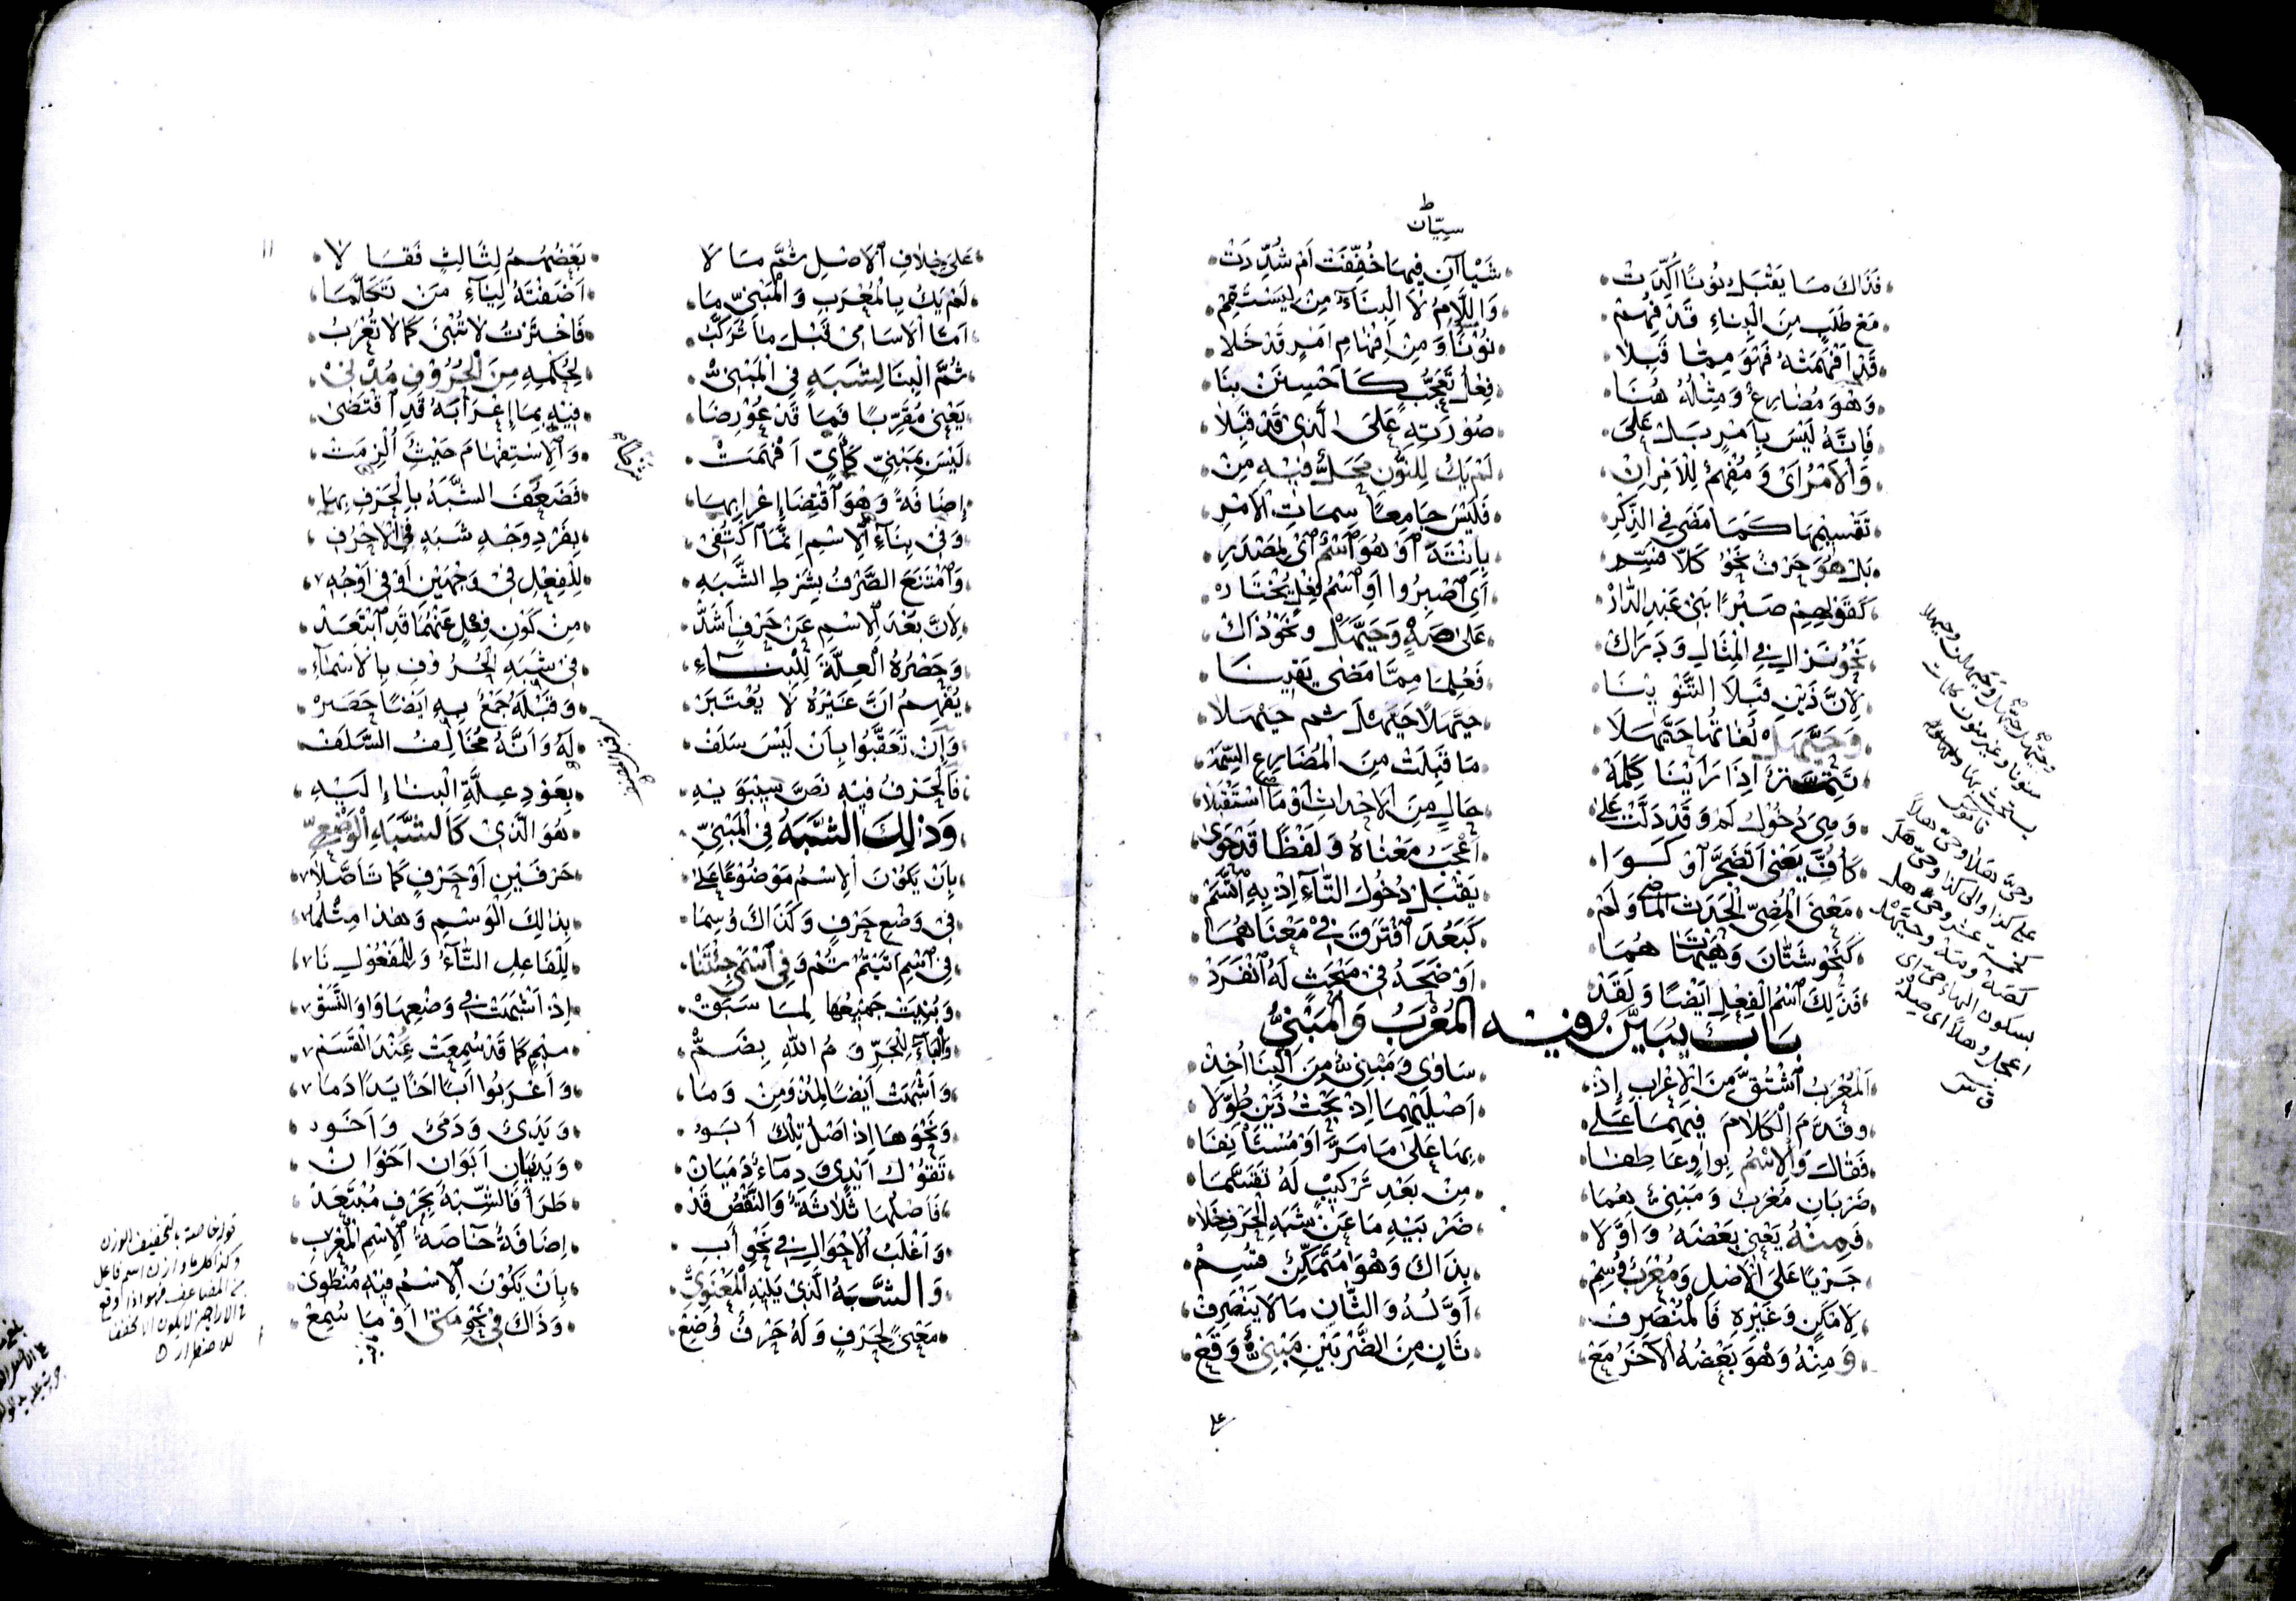 سيّان
فَذَاكَ مَا يَقْبَلُ نُونًا أُكِّدَتْ شَيْاآنِ فِيهَا خُفِّفَتْ أَمْ شُدِّدَتْ
مَعْ طَلَبٍ مِنَ الْبِنَاءِ قَدْ فُهِمْ وَاللَّامُ لَا الْبِنَاءُ مِنْ لِيَسْتَقِمْ
قَدْ أَفْهَمَتْهُ فَهْوَ مِمَّا قَبِلَا نُوْنًا وَمِنْ إِفْهَامِ أَمْرٍ قَدْ خَلَا
وَهْوَ مُضَارِعٌ وَمِثْلُهُ هُنَا فِعْلُ تَعَجُّبٍ كَأَحْسِنَنْ بِنَا
فَإِنَّهُ لَيْسَ بِأَمْرٍ بَلْ عَلَى صُوْرَتِهِ عَلَى الَّذِي قَدْ قَبِلَا
وَالْأَمْرُ أَيْ وَمُفْهِمٌ لِلْأَمْرِ إِنْ لَمْ يَكُ لِلنُّونِ مَحَلٌّ فِيْهِ مِنْ
تَقْسِيْمِهَا كَمَا مَضَى فِي الذِّكْرِ فَلَيْسَ جَامِعًا سِمَاتِ الْأَمْرِ
بَلْ هُوَ حَرْفٌ نَحْوُ كَلَّا فَسِّرِ بِانْتَهِ أَوْ هُوَ اسْمٌ أَيْ لِمَصْدَرِ
كَقَوْلِهِمْ صَبْرًا بَنِي عَبْدِ الدَّارْ أَيِ اصْبِرُوا أَوِ اسْمُ فِعْلٍ يُخْتَارْ
نَحْوُ نَزَالِ فِي الْمِثَالِ وَدَرَاكْ عَلَى صَهٍ وَحَيَّهَلْ وَنَحْوُ ذَاكْ
لِأَنَّ ذَيْنِ قَبِلَا التَّنْوِيْنَا فَعُلِمَا مِمَّا مَضَى يَقِيْنَا
وَحَيَّهَلْ لُغَاتُهَا حَيَّهَلَا حَيَّهَلًا حَيَّهْلَ ثم حَيْهَلَا
تَتِمَّةٌ إِذَا رَأَيْنَا كَلِمَهْ مَا قَبِلَتْ مِنَ الْمُضَارِعِ السِّمَهْ
وَهِيَ دُخُوْلُ لَمْ وَقَدْ دَلَّتْ عَلَى حَالٍ مِنَ الْأَحْدَاثِ أَوْ مَا اسْتُقْبِلَا
كَأُفِّ يَعْنِي أَتَضَجَّرُ أَوْ كَوَا أَعْجَبُ مَعْنَاهُ وَلَفْظًا قَدْ حَوَى
مَعْنَى الْمُضِيِّ لِحَدَثٍ وَلَمْ يَقْبَلْ دُخُولَ التَّاءِ إِذْ بِهِ اتَّسَمْ
كَنَحْوِ شَتَّانَ وَهَيْهَاتَ هُمَا كَبَعُدَ افْتَرَقَ فِي مَعْنَاهُمَا
فَذَلِكَ اسْمُ الْفِعْلِ أَيْضًا وَلَقَدْ أَوْضَحَهُ فِي مَبْحَثٍ لَهُ انْفَرَدْ
بَابٌ يُبَيَّنُ فِيْهِ الْمُعْرَبُ وَالْمَبْنِيُّ
الْمُعْرَبُ اشْتُقَّ مِنَ الْإِعْرَابِ إِذْ سَاوَى وَمَبْنِيٌّ مِنَ الْبِنَا أُخِذْ
وَقَدَّمَ الْكَلَامَ فِيْهِمَا عَلَى أَصْلَيْهِمَا إِذْ بَحْثُ ذَيْنِ طُوِّلَا
فَقَالَ وَالِاسْمُ بِوَاوٍ عَاطِفَا بِهَا عَلَى مَا مَرَّ أَوْ مُسْتَأْنِفَا
ضَرْبَانِ مُعْرَبٌ وَمَبْنِيٌّ هُمَا مِنْ بَعْدِ تَرْكِيْبٍ لَهُ تَقَسَّمَا
فَمِنْهُ يَعْنِي بَعْضَهُ وَأَوَّلَا ضَرْبَيْهِ مَا عَنْ شَبَهِ الْحَرْفِ خَلَا
جَرْيًا عَلَى الْأَصْلِ وَمُعْرَبٌ وُسِمْ بِذَاكَ وَهْوَ مُتَمَكِّنٌ قُسِمْ
لِأَمْكَنٍ وَغَيْرِهِ فَالْمُنْصَرِفْ أَوَّلُهُ وَالثَّانِ مَا لَا يَنْصَرِفْ
وَمِنْهُ وَهْوَ بَعْضُهُ الْآخَرُ مَعْ ثَانٍ مِنَ الضَّرْبَيْنِ مَبْنِيٌّ وَقَعْ
على
١١
عَلَى خِلَافِ الْأَصْلِ ثُمَّ مَا لَا بَعْضُهُمْ لِثَالِثٍ فَقَالَا
لَمْ يَكُ بِالْمُعْرَبِ وَالْمَبْنِيِّ مَا أَضَفْتَهُ لِيَاءِ مَنْ تَكَلَّمَا
أَمَّا الْأَسَامِي قَبْلَ مَا تُرَكَّبُ فَاخْتَرْتُ لَا تُبْنَى كَمَا لَا تُعْرَبُ
ثُمَّ الْبِنَا لِشَبَهٍ فِي الْمَبْنِيْ لِحُكْمِهِ مِنَ الْحُرُوْفِ مُدْنِيْ
يَعْنِي مُقَرِّبًا فَمَا قَدْ عُوْرِضَا فِيْهِ بِمَا إِعْرَابَهُ قَدِ اقْتَضَى
لَيْسَ بِمَبْنِيٍّ كَأَيٍّ أَفْهَمَتْ وَالِاسْتِفْهَامَ حَيْثُ أُلْزِمَتْ
إِضَافَةً وَهْوَ اقْتِضَا إِعْرَابِهَا فَضَعُفَ الشَّبَهُ بِالْحَرْفِ بِهَا
وَفِي بِنَاءِ الِاسْمِ إِنَّمَا اكْتُفِيْ بِفَرْدِ وَجْهِ شَبَهٍ فِي الْأَحْرُفِ
وَامْتَنَعَ الصَّرْفُ بِشَرْطِ الشَّبَهِ لِلْفِعْلِ فِي وَجْهَيْنِ أَوْ فِي أَوْجُهِ
لِأَنَّ بُعْدَ الِاسْمِ عَنْ حَرْفٍ أَشَدّْ مِنْ كَوْنِ فِعْلٍ عَنْهُمَا قَدِ ابْتَعَدْ
وَحَصْرُهُ الْعِلَّةَ لِلْبِنَاءِ فِي شَبَهِ الْحُرُوْفِ بِالْأَسْمَاءِ
يُفْهِمُ أَنَّ غَيْرَهُ لَا يُعْتَبَرْ وَقَبْلَهُ جَمْعٌ بِهِ أَيْضًا حَصَرْ
وَإِنْ تَعَقَّبُوا بِأَنْ لَيْسَ سَلَفْ لَهُ وَأَنَّهُ مُخَالِفُ السَّلَفْ
فَالْحَرْفُ فِيْهِ نَصَّ سِيْبَوَيْهِ بِعَوْدِ عِلَّةِ الْبِنَاءِ إِلَيْهِ
وَذٰلِكَ الشَّبَهُ فِي الْمَبْنِيِّ هُوَ الَّذِيْ كَالشَّبَهِ الْوَضْعِيِّ
بِأَنْ يَكُوْنَ الِاسْمُ مَوْضُوْعًا عَلَى حَرْفَيْنِ أَوْ حَرْفٍ كَمَا تَأَصَّلَا
فِي وَضْعِ حَرْفٍ وَكَذَاكَ وُسِمَا بِذَلِكَ الْوَسْمِ وَهٰذَا مِثْلُمَا
فِي اسْمِ أَتَيْتُمْ ثُمَّ وَفِي اسْمَيْ جِئْتَنَا لِلْفَاعِلِ التَّاءُ وَلِلْمَفْعُولِ نَا
وَبُنِيَتْ جَمِيْعُهَا لِمَا سَبَقْ إِذْ أَشْبَهَتْ فِي وَضْعِهَا وَاوَ النَّسَقْ
وَالْبَاءَ لِلْجَرِّ وَمُ اللهِ بِضَمّْ مِيْمٍ كَمَا قَدْ سُمِعَتْ عِنْدَ الْقَسَمْ
وَأَشْبَهَتْ أَيْضًا لِمُذْ وَمِنْ وَمَا وَأَعْرَبُوا أَبًا أَخًا يَدًا دَمَا
وَنَحْوَهَا إِذْ أَصْلُ تِلْكَ أَبَوُ وَيَدَيٌ وَدَمَيٌ وَأَخَوُ
تَقُوْلُ أَيْدِيْ وَدِمَاءٌ دَمَيَانْ وَيَدَيَانِ أَبَوَانِ أَخَوَانْ
فَأَصْلُهَا ثَلَاثَةٌ وَالنَّقْصُ قَدْ طَرَأَ فَالشَّبَهُ بِحَرْفٍ مُبْتَعَدْ
وَأَغْلَبُ الْأَحْوَالِ فِي نَحْوِ أَبِ إِضَافَةٌ خَاصَةُ الِاسْمِ الْمُعْرَبِ
وَالشَّبَهُ الَّذِي يَلِيْهِ الْمَعْنَوِيّْ بِأَنْ يَكُوْنَ الِاسْمُ فِيْهِ مُنْطَوِيْ
مَعْنًى لِحَرْفٍ وَلَهُ حَرْفٌ وُضِعْ وَذَاكَ فِي نَحْوِ مَتَى أَوْ مَا سُمِعْ
قوله خاصة بالتخفيف للوزن